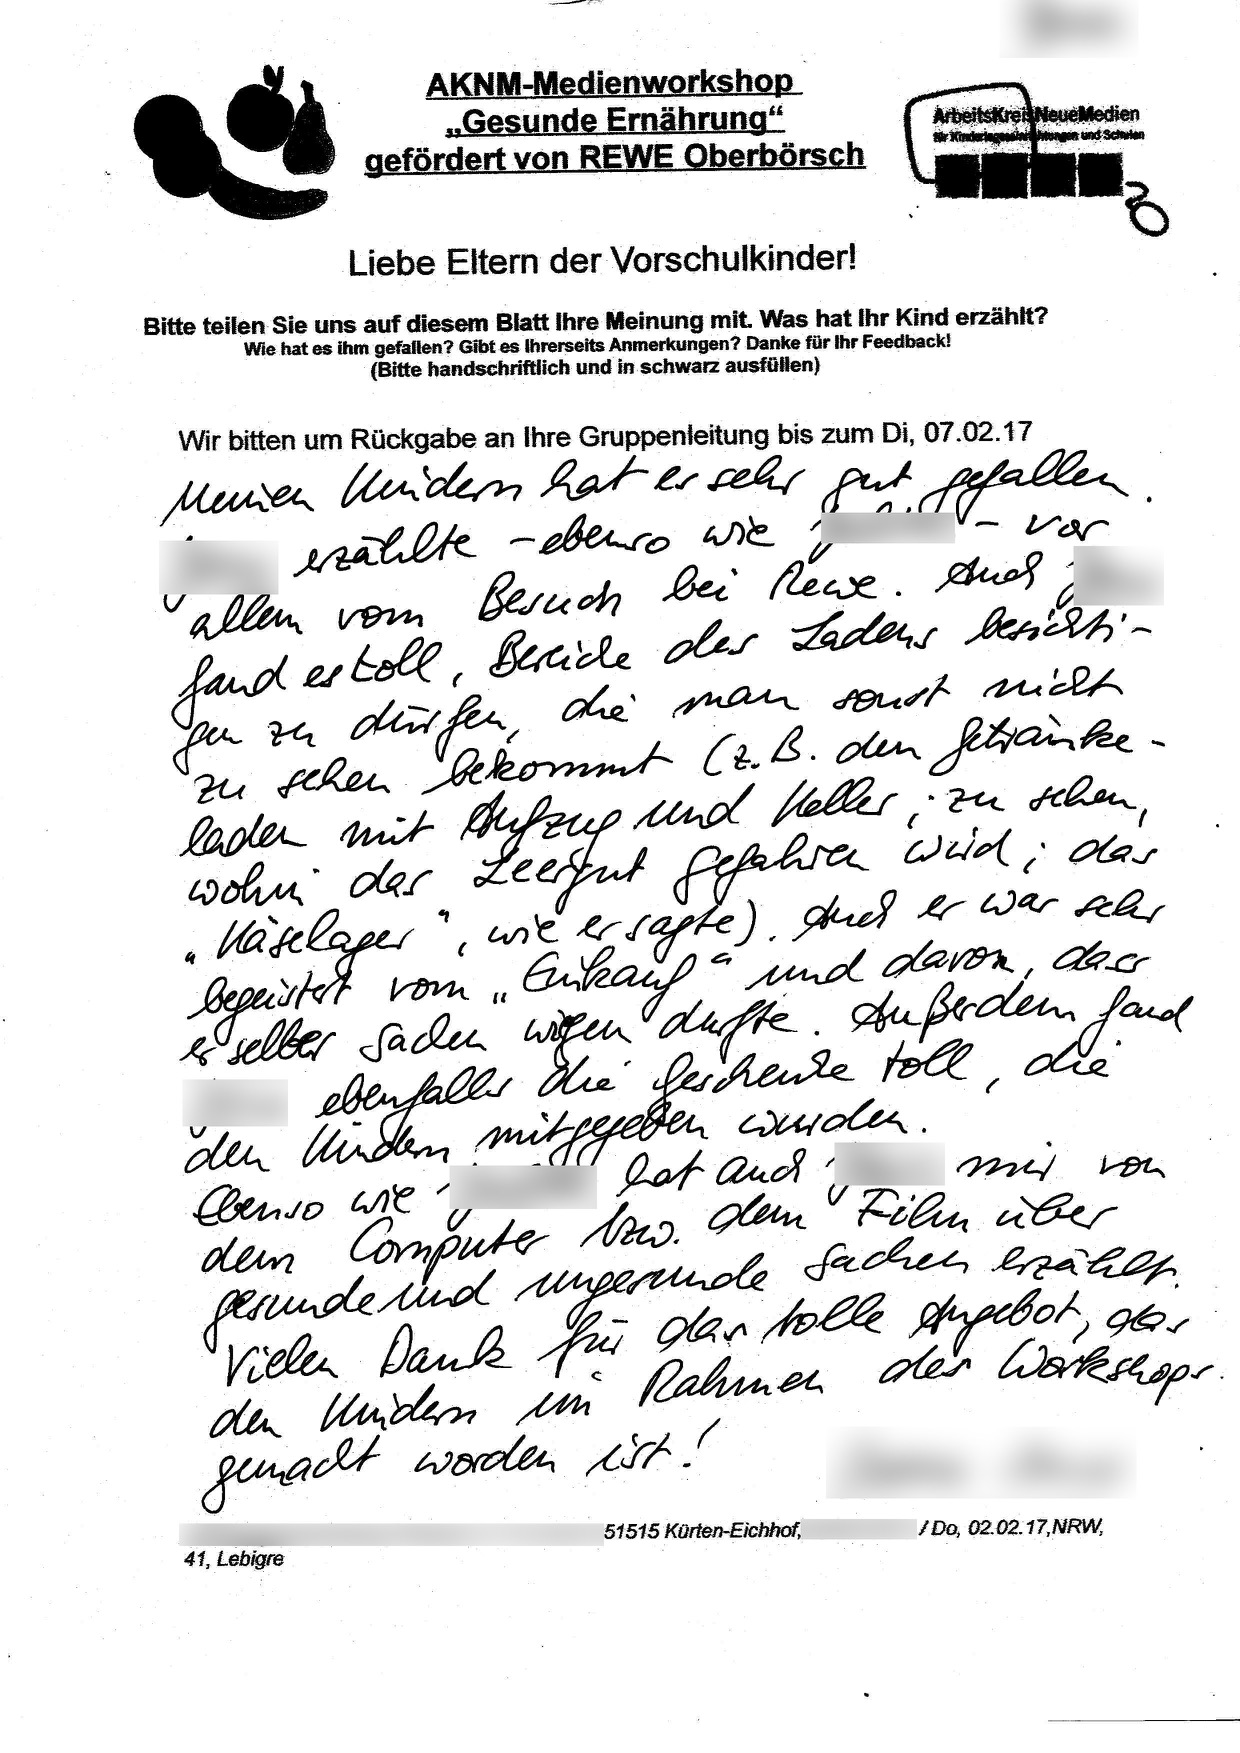 AKNM-Medienworkshop
„Gesunde Ernährung“
gefördert von REWE Oberbörsch
ArbeitsKreisNeueMedien
für Kindertageseinrichtungen und Schulen
Liebe Eltern der Vorschulkinder!
Bitte teilen Sie uns auf diesem Blatt Ihre Meinung mit. Was hat Ihr Kind erzählt?
Wie hat es ihm gefallen? Gibt es Ihrerseits Anmerkungen? Danke für Ihr Feedback!
(Bitte handschriftlich und in schwarz ausfüllen)
Wir bitten um Rückgabe an Ihre Gruppenleitung bis zum Di, 07.02.17
Meinen Kindern hat er sehr gut gefallen.
erzählte - ebenso wie - vor
allem vom Besuch bei Rewe. Auch
fand es toll, Bereiche des Ladens besichti-
gen zu dürfen, die man sonst nicht
zu sehen bekommt (z.B. den Getränke-
laden mit Aufzug und Keller; zu sehen,
wohin das Leergut gefahren wird; das
„Käselager“, wie er sagte). Auch er war sehr
begeistert vom „Einkauf“ und davon, dass
er selber Sachen wiegen durfte. Außerdem fand
ebenfalls die Geschenke toll, die
den Kindern mitgegeben wurden.
Ebenso wie hat auch mir von
dem Computer bzw. dem Film über
gesunde und ungesunde Sachen erzählt.
Vielen Dank für das tolle Angebot, das
den Kindern im Rahmen des Workshops
gemacht worden ist!
51515 Kürten-Eichhof, / Do, 02.02.17,NRW,
41, Lebigre